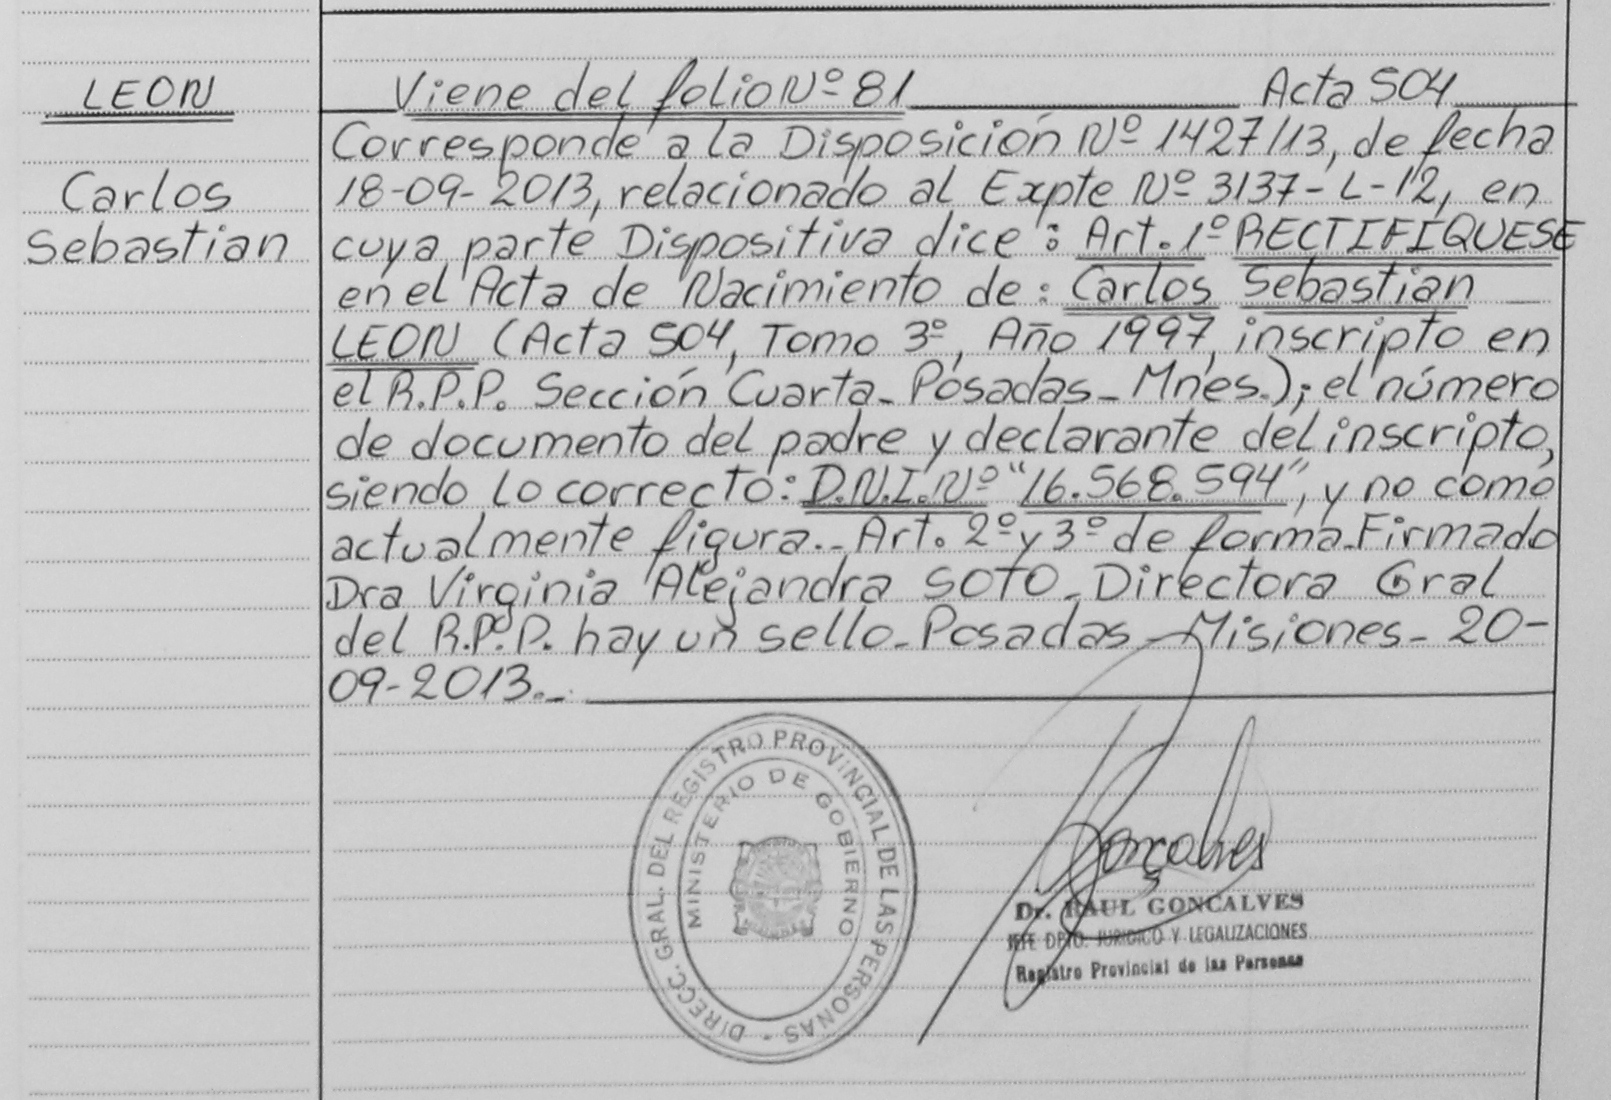 LEON
Carlos
Sebastian
Viene del folio Nº 81 Acta 504
Corresponde a la Disposición Nº 1427/13, de fecha
18-09-2013, relacionado al Expte Nº 3137-L-12, en
cuya parte Dispositiva dice: Art. 1º RECTIFIQUESE
en el Acta de Nacimiento de: Carlos Sebastian
LEON (Acta 504, Tomo 3º, Año 1997, inscripto en
el R.P.P. Sección Cuarta-Posadas-Mnes.); el número
de documento del padre y declarante del inscripto,
siendo lo correcto: D.N.I. Nº "16.568.594", y no como
actualmente figura.- Art. 2º y 3º de forma-Firmado
Dra Virginia Alejandra SOTO-Directora Gral
del R.P.P. hay un sello-Posadas-Misiones-20-
09-2013.-
DIRECC. GRAL. DEL REGISTRO PROVINCIAL DE LAS PERSONAS -
MINISTERIO DE GOBIERNO
Gonçalves
Dr. RAUL GONCALVES
JEFE DPTO. JURIDICO Y LEGALIZACIONES
Registro Provincial de las Personas